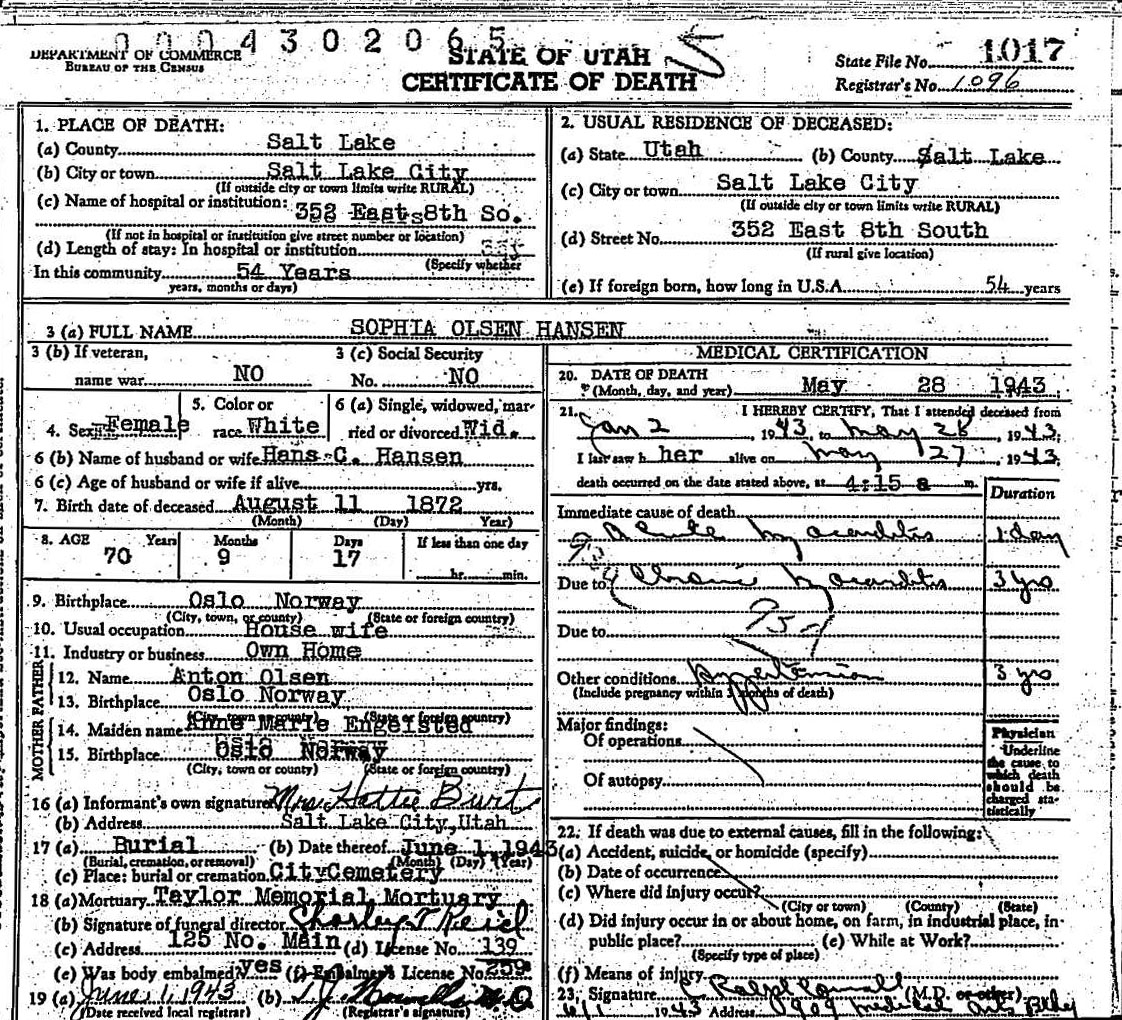 0004302065
DEPARTMENT OF COMMERCE
BUREAU OF THE CENSUS
STATE OF UTAH
CERTIFICATE OF DEATH
State File No. 1017
Registrar's No. 1096
1. PLACE OF DEATH:
(a) County Salt Lake
(b) City or town Salt Lake City
(If outside city or town limits write RURAL)
(c) Name of hospital or institution: 352 East 8th So.
(If not in hospital or institution give street number or location)
(d) Length of stay: In hospital or institution
(Specify whether
In this community 54 Years
years, months or days)
2. USUAL RESIDENCE OF DECEASED:
(a) State Utah (b) County Salt Lake
(c) City or town Salt Lake City
(If outside city or town limits write RURAL)
(d) Street No. 352 East 8th South
(If rural give location)
(e) If foreign born, how long in U.S.A. 54 years
3 (a) FULL NAME SOPHIA OLSEN HANSEN
3 (b) If veteran, name war NO
3 (c) Social Security No. NO
4. Sex Female
5. Color or race White
6 (a) Single, widowed, married or divorced Wid.
6 (b) Name of husband or wife Hans C. Hansen
6 (c) Age of husband or wife if alive yrs.
7. Birth date of deceased August 11 1872
(Month) (Day) Year)
8. AGE Years Months Days If less than one day
70 9 17
hr. min.
9. Birthplace Oslo Norway
(City, town, or county) (State or foreign country)
10. Usual occupation House wife
11. Industry or business Own Home
FATHER
12. Name Anton Olsen
13. Birthplace Oslo Norway
(City, town or county) (State or foreign country)
MOTHER
14. Maiden name Anne Marie Engelsted
15. Birthplace Oslo Norway
(City, town or county) (State or foreign country)
16 (a) Informant's own signature Mrs. Hattie Burt
(b) Address Salt Lake City, Utah
17 (a) Burial (b) Date thereof June 1 1943
(Burial, cremation, or removal) (Month) (Day) (Year)
(c) Place: burial or cremation City Cemetery
18 (a) Mortuary Taylor Memorial Mortuary
(b) Signature of funeral director
(c) Address 125 No. Main (d) License No. 139
(e) Was body embalmed? yes (f) Embalmer's License No. 259
19 (a) June, 1, 1943 (b)
(Date received local registrar) (Registrar's signature)
MEDICAL CERTIFICATION
20. DATE OF DEATH
(Month, day, and year) May 28 1943
21. I HEREBY CERTIFY, That I attended deceased from
Jan 2, 1943, to May 28, 1943;
I last saw her alive on May 27, 1943;
death occurred on the date stated above, at 4:15 a m.
Duration
Immediate cause of death
Acute myocarditis 1 day
Due to Chronic myocarditis 3 yrs
Due to
Other conditions Hypertension 3 yrs
(Include pregnancy within 3 months of death)
Major findings:
Of operations
Of autopsy
Physician
Underline
the cause to
which death
should be
charged sta-
tistically
22. If death was due to external causes, fill in the following:
(a) Accident, suicide, or homicide (specify)
(b) Date of occurrence
(c) Where did injury occur?
(City or town) (County) (State)
(d) Did injury occur in or about home, on farm, in industrial place, in
public place? (e) While at Work?
(Specify type of place)
(f) Means of injury
23. Signature (M.D. or other)
6/1 1943 Address Medical Arts Bldg